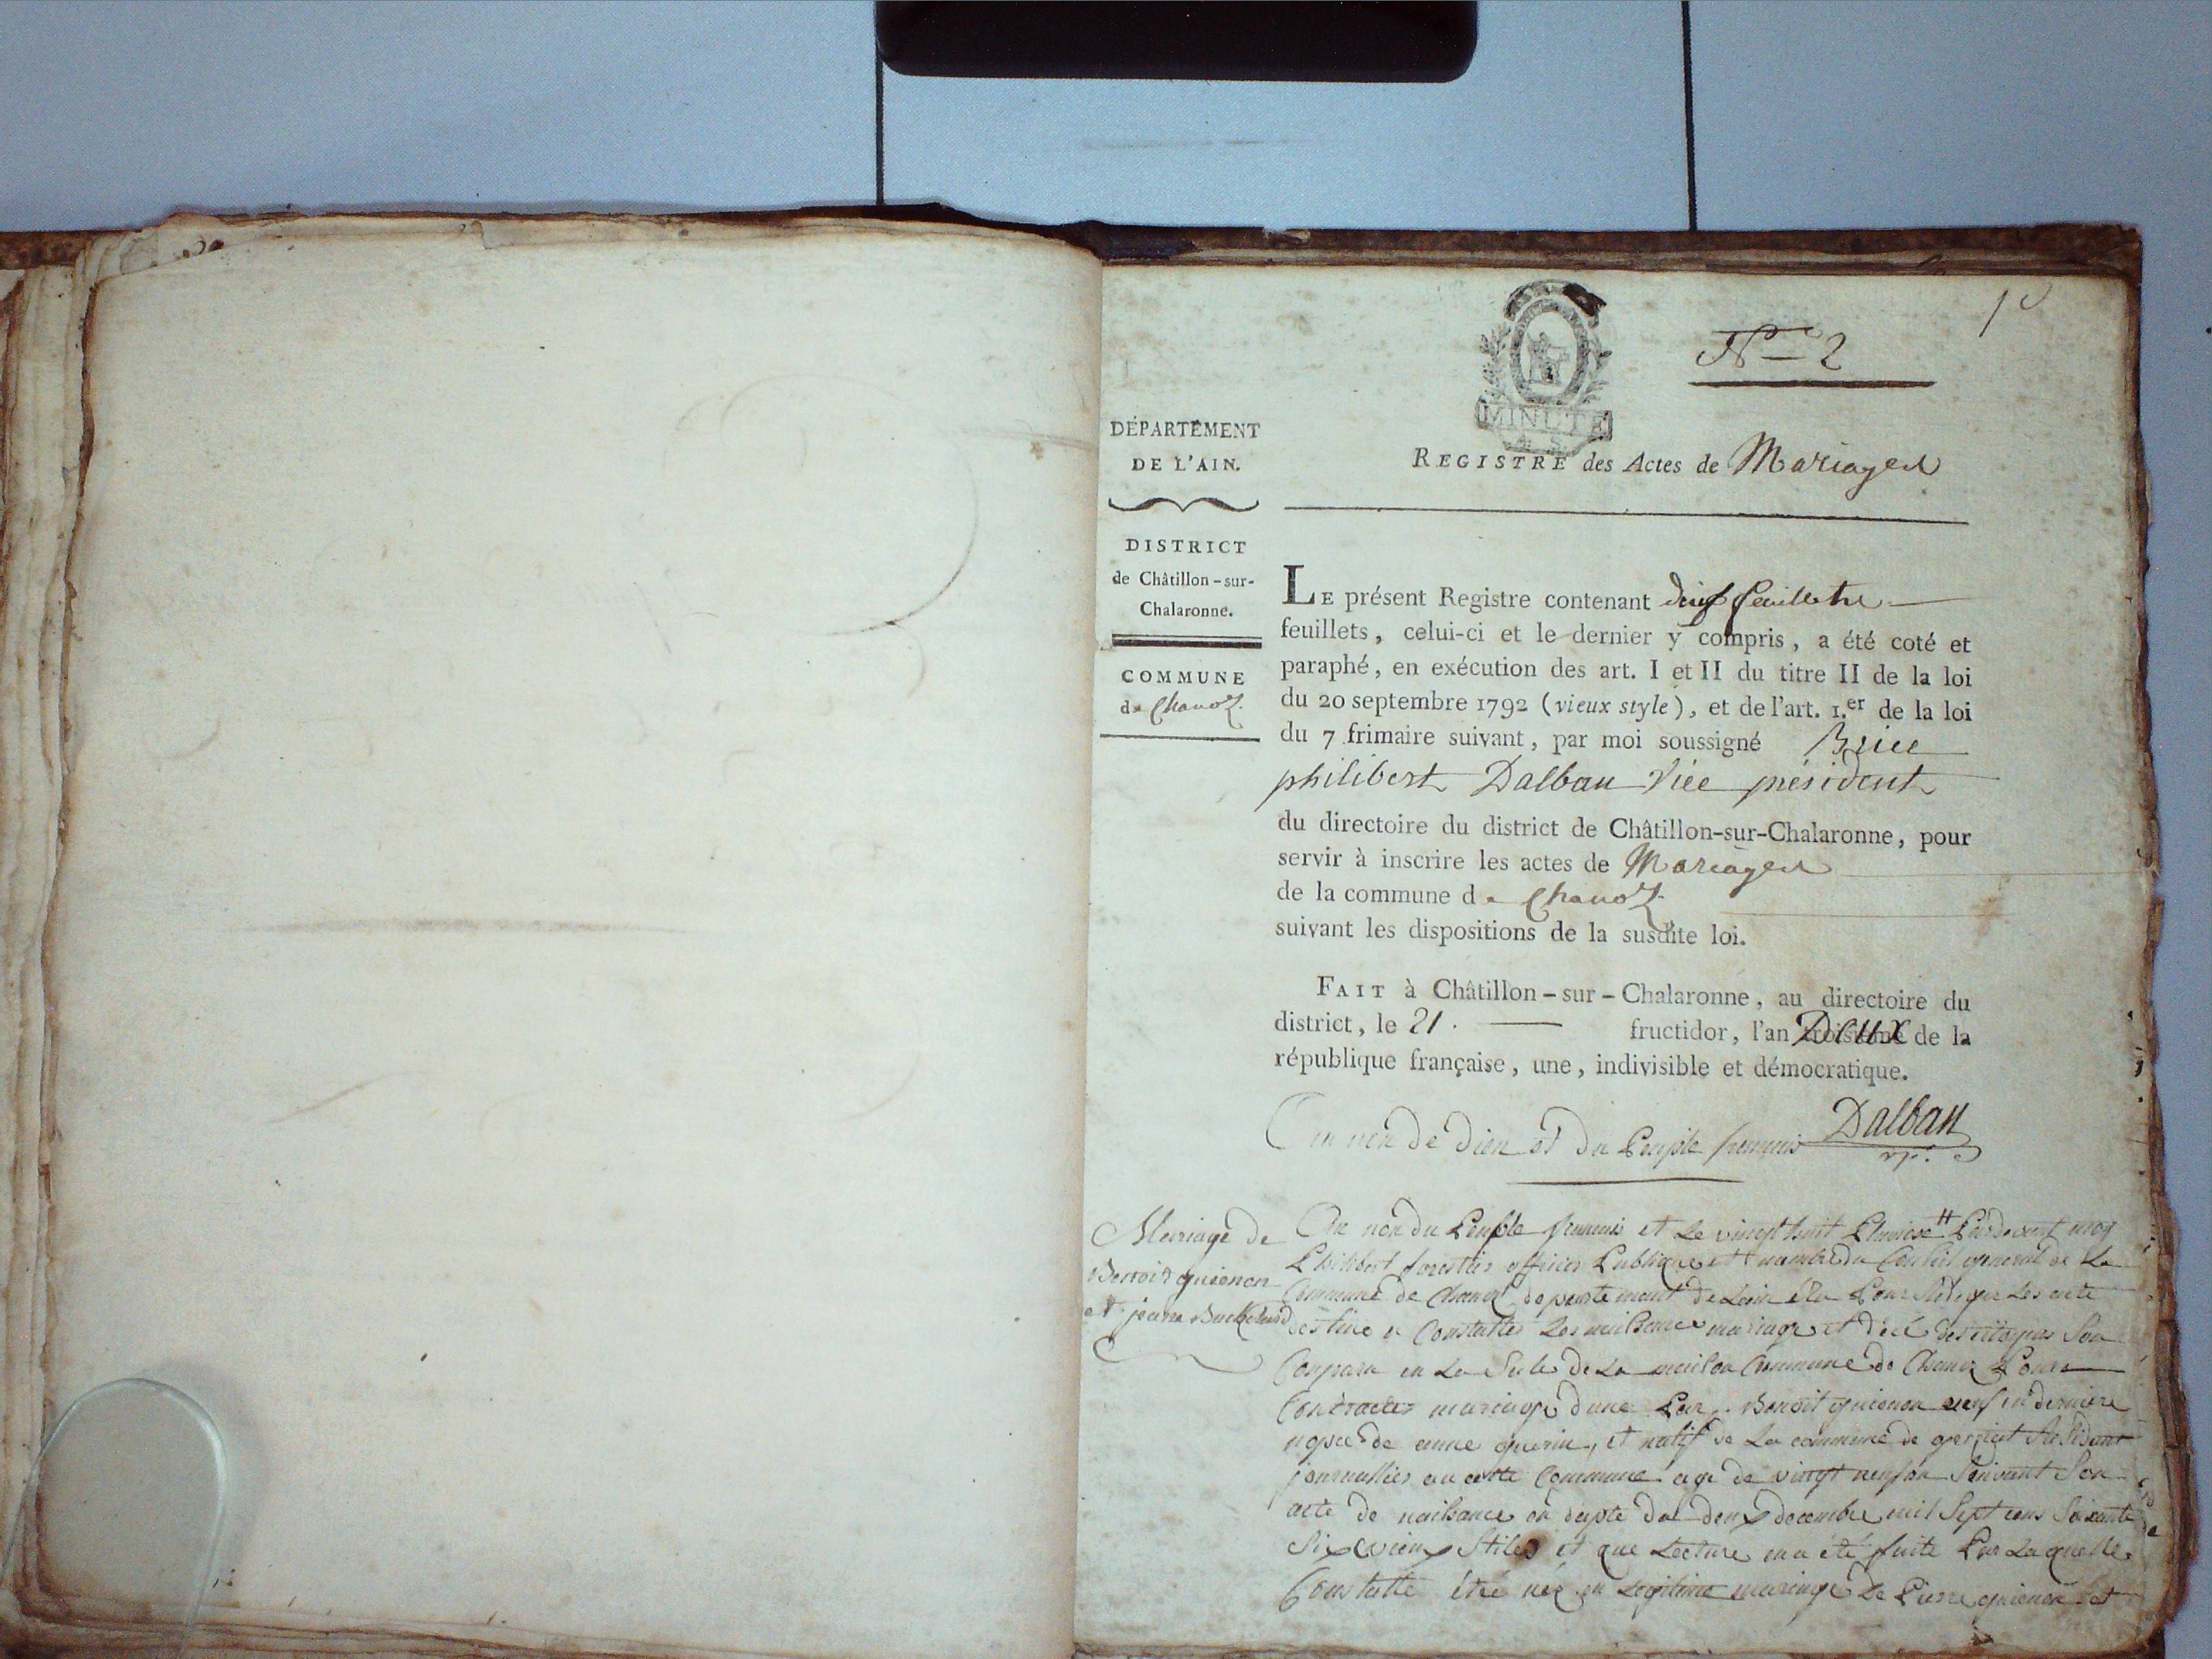 N° 2
MINUTE
DÉPARTEMENT
DE L'AIN.
REGISTRE des Actes de Mariages
DISTRICT
de Châtillon-sur-
Chalaronne.
COMMUNE
de Chanoz
LE présent Registre contenant feuillets
feuillets, celui-ci et le dernier y compris, a été coté et
paraphé, en exécution des art. I et II du titre II de la loi
du 20 septembre 1792 (vieux style), et de l'art. 1.er de la loi
du 7 frimaire suivant, par moi soussigné Brice
philibert Dalban Vice président
du directoire du district de Châtillon-sur-Chalaronne, pour
servir à inscrire les actes de Mariages
de la commune de Chanoz
suivant les dispositions de la susdite loi.
FAIT à Châtillon-sur-Chalaronne, au directoire du
district, le 21. fructidor, l'an Deux de la
république française, une, indivisible et démocratique.
Dalban
vp.
de dieu et du Peuple francais
Mariage de
Benoit guienon
et jeane
Au non du Peuple francais et Le vingt huit Pluviose Pardevant moy
Philibert forestier officier Publique et membre du Conseil general de La
Commune de Chanoz departement de Lain élu Pour Les acte
destiné a Constatter Les naissance mariage et
Conparu en La Salle de La maison Commune de Chanoz Pour
Contracter mariage dune Par Benoit guienon veuf en derniere
de anne guerin, et natif de La commune de
journallier en cette Commune age de vingt neuf an Suivant Son
acte de naissance en dapte du deux decembre mil Sept cens Soixante
Six vieux Stiles et que Lecture ma été faite Par Laquelle
Constatte étre né en Legitime mariage de Pierre guienon et